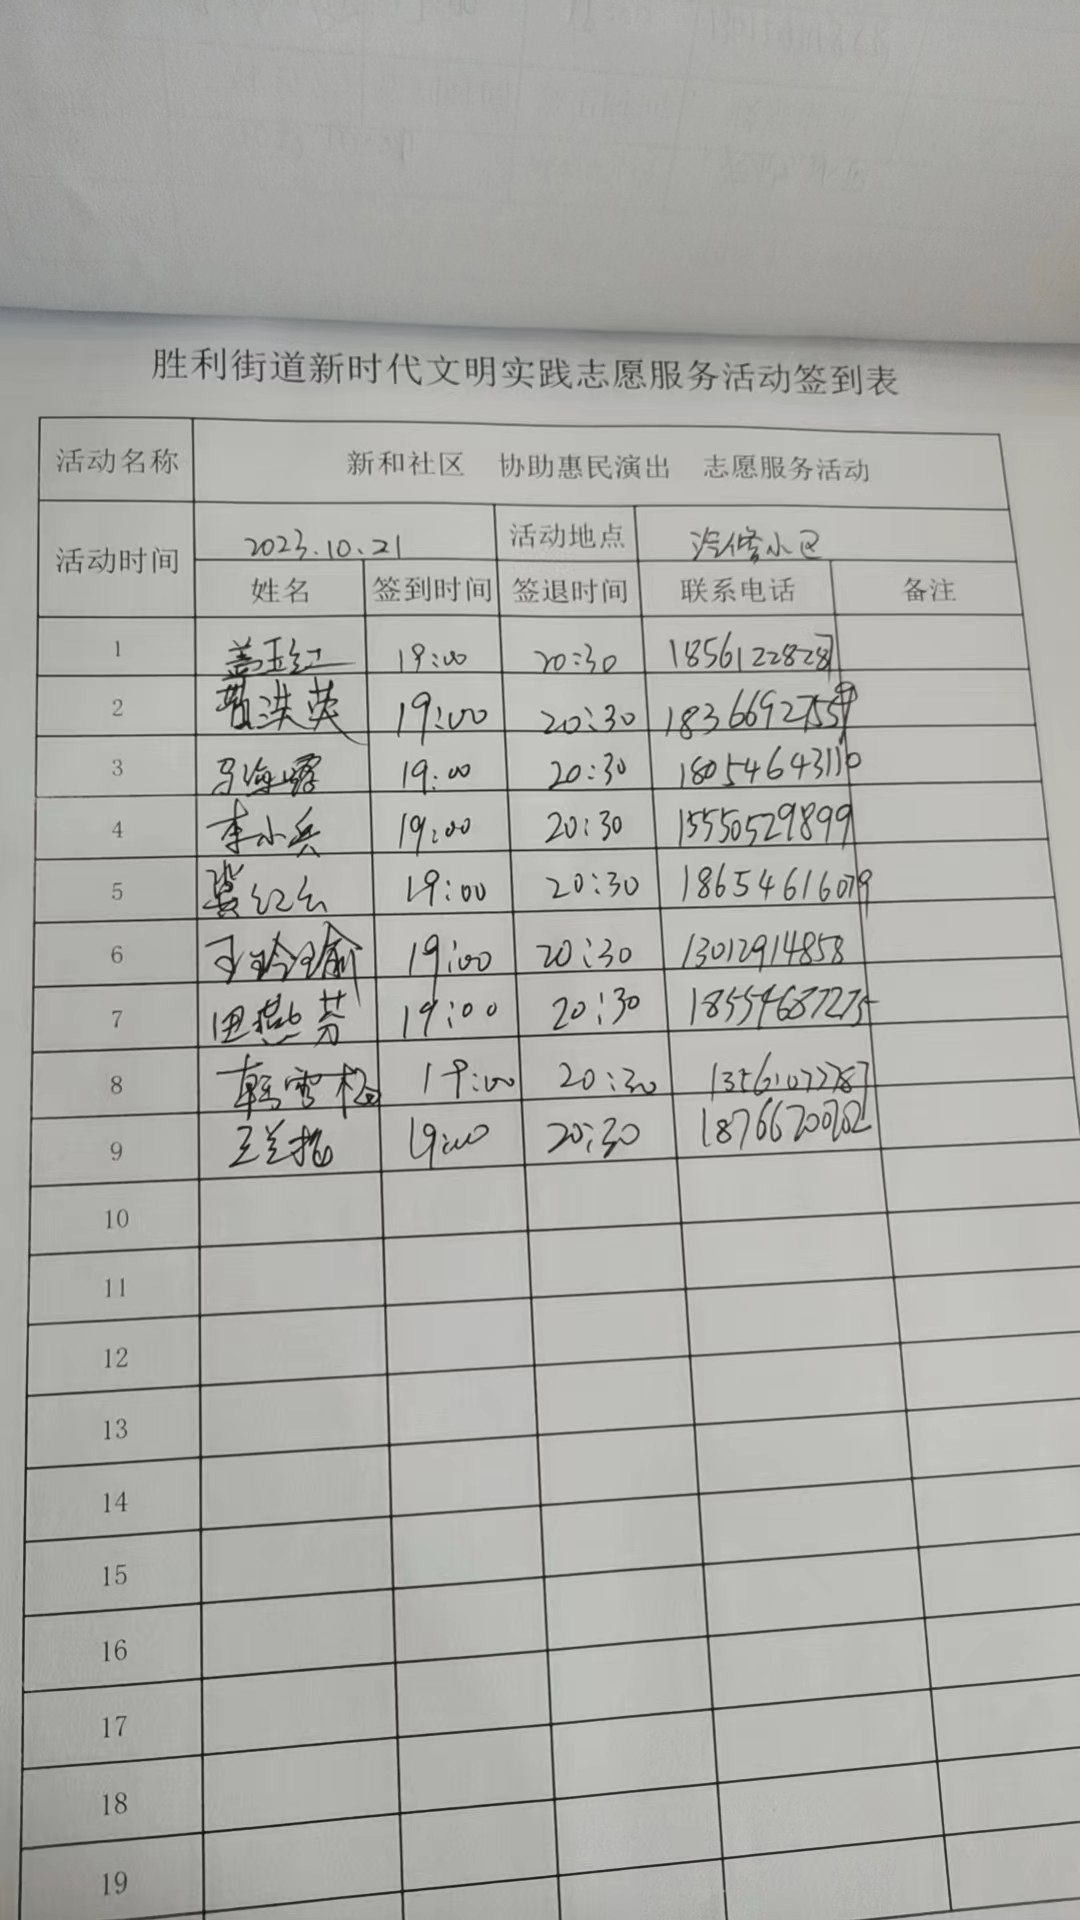 胜利街道新时代文明实践志愿服务活动签到表
活动名称 新和社区 协助惠民演出 志愿服务活动
活动时间 2023.10.21 活动地点 汽修小区
姓名 签到时间 签退时间 联系电话 备注
1 盖玉红 19:00 20:30 18561228287
2 曹洪英 19:00 20:30 18366927559
3 马海霞 19:00 20:30 18054643110
4 李小兵 19:00 20:30 15550529899
5 龚红云 19:00 20:30 18654616079
6 王玲瑜 19:00 20:30 13012914858
7 田燕芬 19:00 20:30 18554687275
8 韩雪梅 19:00 20:30 13561077787
9 王兰梅 19:00 20:30 18766700702
10
11
12
13
14
15
16
17
18
19